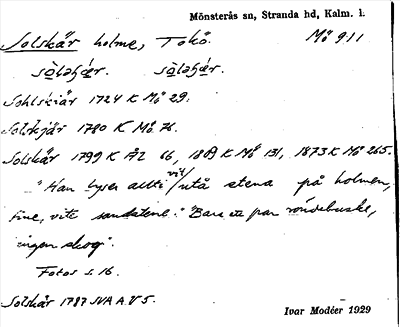 Mönsterås sn, Stranda hd, Kalm. l.
Solskär holme, Tokö. Mö 911
Sohlskiär 1724 K Mö 29.
Solskjär 1780 K Mö 76.
Solskär 1799 K ÄZ 66, 1809 K Mö 131, 1873 K Mö 265.
"Han lyser allti utå stena på holmen,
fine, vite sandstene." "Bara ett par röudebuske,
ingen skog".
Fotos s. 16.
Solskär 1787 SVA A.V 5.
Ivar Modéer 1929